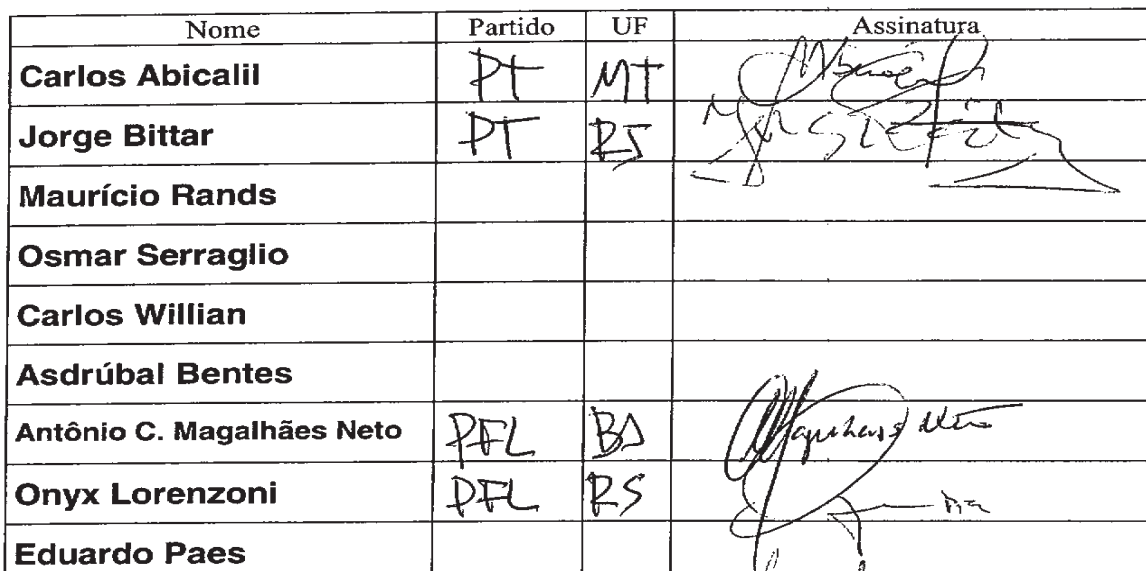 Nome Partido UF Assinatura
Carlos Abicalil PT MT
Jorge Bittar PT RJ
Maurício Rands
Osmar Serraglio
Carlos Willian
Asdrúbal Bentes
Antônio C. Magalhães Neto PFL BA Magalhães Neto
Onyx Lorenzoni PFL RS
Eduardo Paes